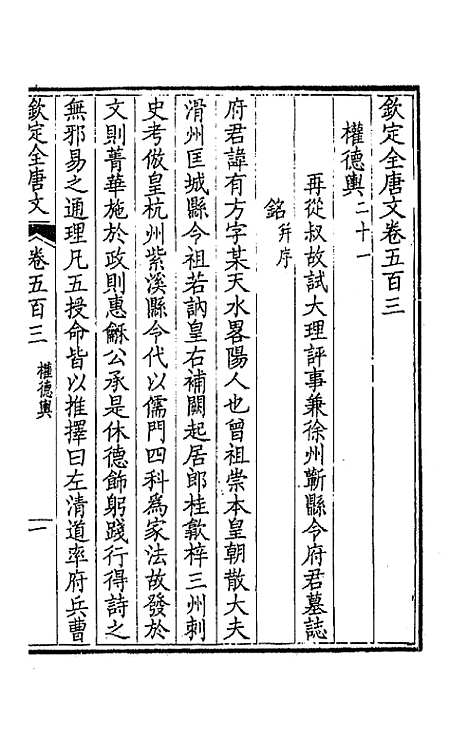 欽定全唐文卷五百三
權德輿二十一
再從叔故試大理評事兼徐州蘄縣令府君墓誌
銘并序
府君諱有方字某天水畧陽人也曾祖崇本皇朝散大夫
滑州匡城縣令祖若訥皇右補闕起居郎桂歙梓三州刺
史考倣皇杭州紫溪縣令代以儒門四科爲家法故發於
文則菁華施於政則惠龢公承是休德飾躬踐行得詩之
無邪易之通理凡五授命皆以推擇曰左清道率府兵曹
欽定全唐文
卷五百三
權德輿
一